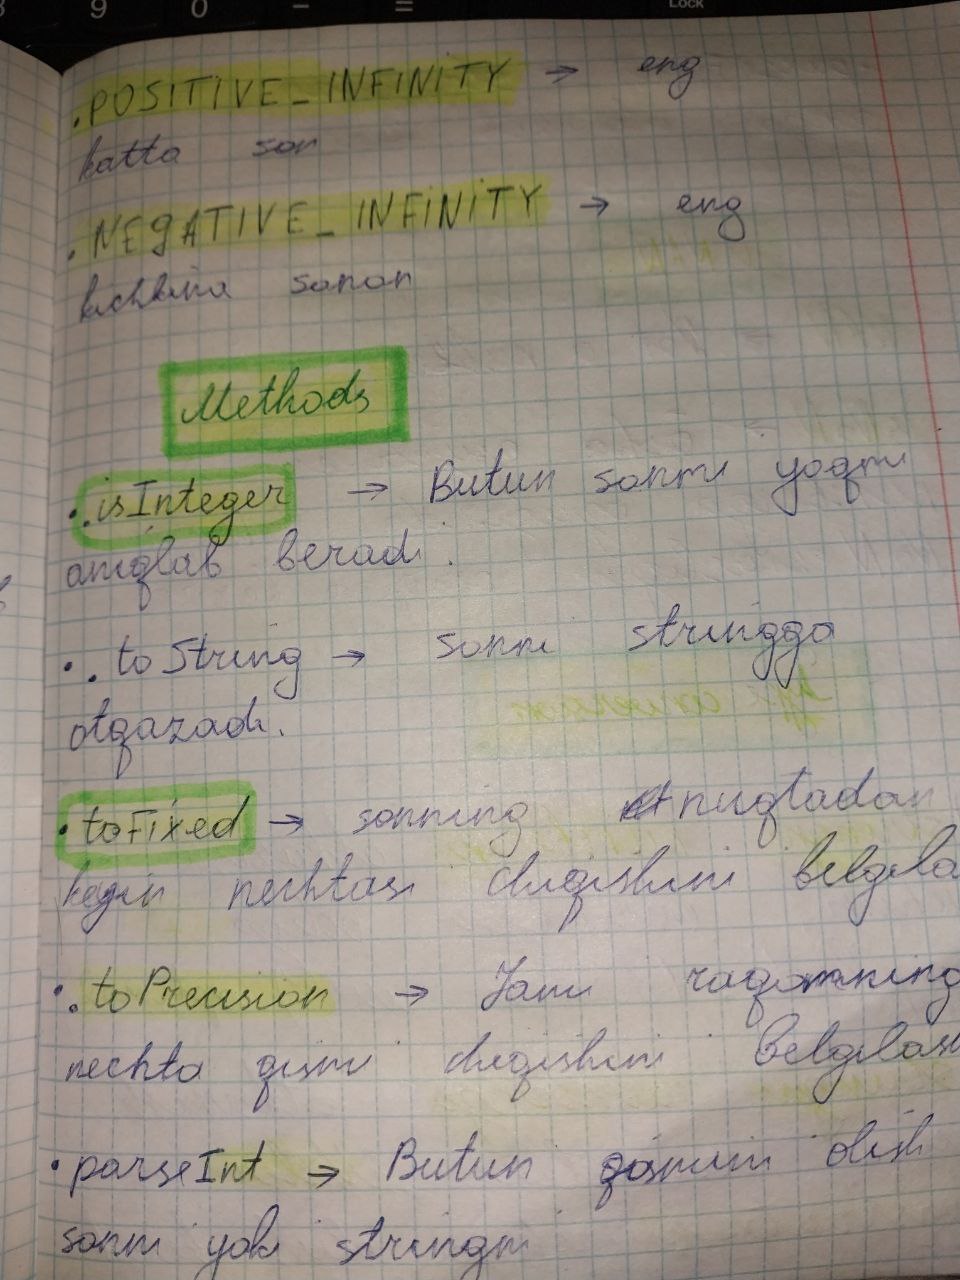 .POSITIVE_INFINITY → eng
katta son
.NEGATIVE_INFINITY → eng
kichkina sonan
Methods
• .isInteger → Butun sonmi yoqmi
aniqlab beradi.
• .toString → sonni stringga
otqazadi.
• toFixed → sonning nuqtadan
kegin nechtasi chiqishini belgila
• .toPrecision → Jami raqamning
nechta qismi chiqishini belgilash
• parseInt → Butun qismini olish
sonni yoki stringni
9 0 - =
Lock